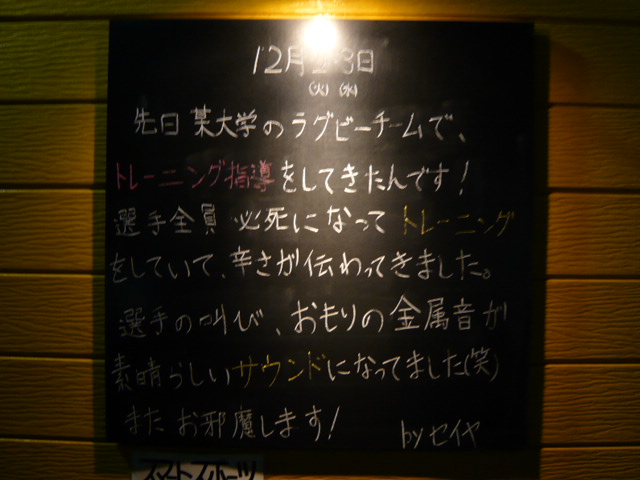 12月2・3日
(火)(水)
先日某大学のラグビーチームで、
トレーニング指導をしてきたんです!
選手全員 必死になって トレーニング
をしていて、辛さが伝わってきました。
選手の叫び、おもりの金属音が
素晴らしいサウンドになってました(笑)
また お邪魔します! byセイヤ
スマートスポーツ